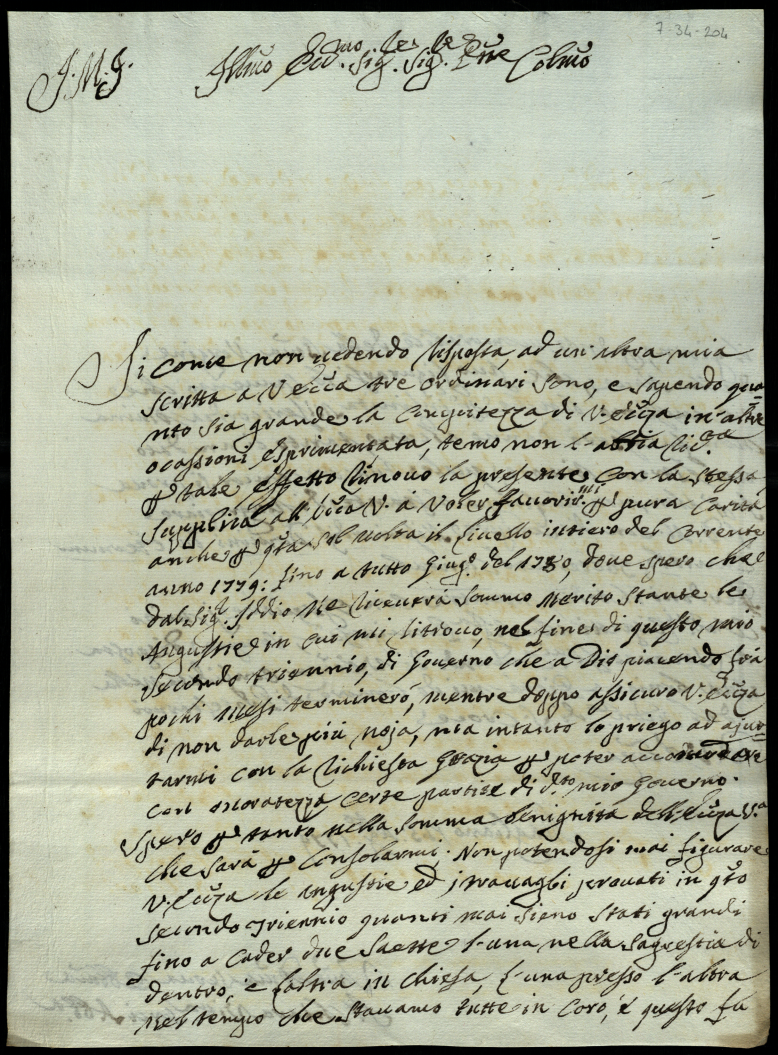 7-34-204
J. M. J.
Illmo Ecc.mo Sig.re Sig.re Pne Colmo
Si come non vedendo risposta, ad un'altra mia
scritta a V Ecca tre ordinari sono, e sapendo qua=
nto sia grande la Compitezza di V. Ecc:za in altre
ocassioni esprimentata, temo non l'abbia ric.ta
p tale effetto rinovo la presente con la stessa
supplica all' Ecc:za V. á voler favorir.mi p pura carità
anche p q.ta sol volta il livello intiero del corrente
anno 1779: fino a tutto Giug.o del 1780, dove spero che
dal Sig.r Iddio ne riceverà sommo merito stante le
Angustie in cui mi ritrovo, nel fine di questo mio
secondo triennio, di Governo che a Dio piacendo frà
pochi mesi terminerò, mentre doppo assicuro V. Ecc:za
di non darle più noja, ma intanto lo priego ad ajut=
tarmi con la richiesta Grazia p poter accomodare
con onoratezza certe partite di d.to mio Governo.
Spero p tanto nella somma benignità dell' Ecc:za V.a
che sarà p Consolarmi. Non potendosi mai figurare
V. Ecc:za le angustie ed i travagli provati in q.to
secondo Triennio quanti mai sieno stati grandi
fino a cader due Saette l'una nella Sagrestia di
dentro, e l'altra in chiesa, l'una presso l'altra
nel tempo che stavamo tutte in Coro, e questo fu